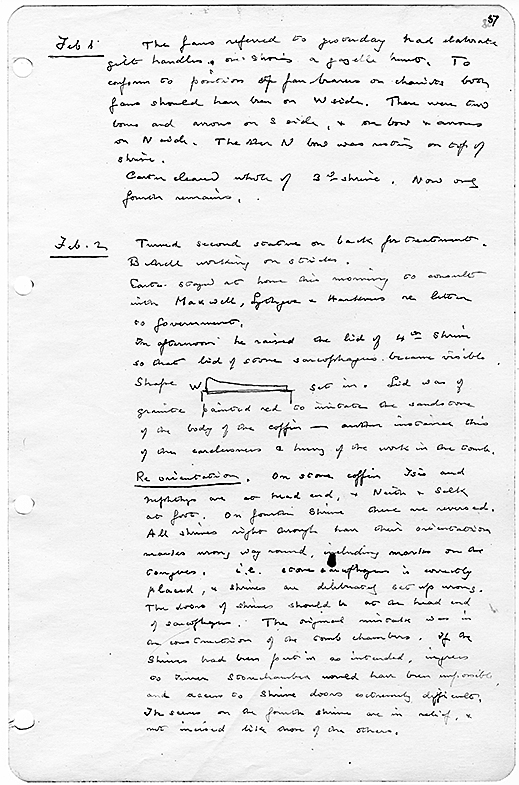 57
Feb 1. The fans referred to yesterday had elaborate
gilt handles, on shrine a gazelle hunt. To
conform to position of fan bearers on chariots both
fans should have been on W side. There were two
bows and arrows on S side, & one bow & arrows
on N side. The N bow was resting on top of
shrine.
Carter cleared whole of 3rd shrine. Now only
fourth remains.
Feb. 2 Turned second statue on back for treatment.
Bethell working on sticks.
Carter stayed at home this morning to consult
with Maxwell, Lythgoe & Harkness re letter
to Government.
In afternoon he raised the lid of 4th Shrine
so that lid of stone sarcophagus became visible.
Shape W set in. Lid was of
granite painted red to imitate the sandstone
of the body of the coffin — another instance this
of the carelessness & hurry of the work in the tomb.
Re orientation. On stone coffin Isis and
Nephthys are at head end, & Neith & Selk
at foot. On fourth Shrine these are reversed.
All shrines right through have their orientation
marks wrong way round, including marks on the
tongues. i.e. stone sarcophagus is correctly
placed, & shrines are deliberately set up wrong.
The doors of shrines should be at the head end
of sarcophagus. The original mistake was in
the construction of the tomb chambers. If the
Shrines had been put in as intended, ingress
to Inner Storechamber would have been impossible,
and access to Shrine doors extremely difficult.
The scenes on the fourth shrine are in relief, &
not incised like those of the others.